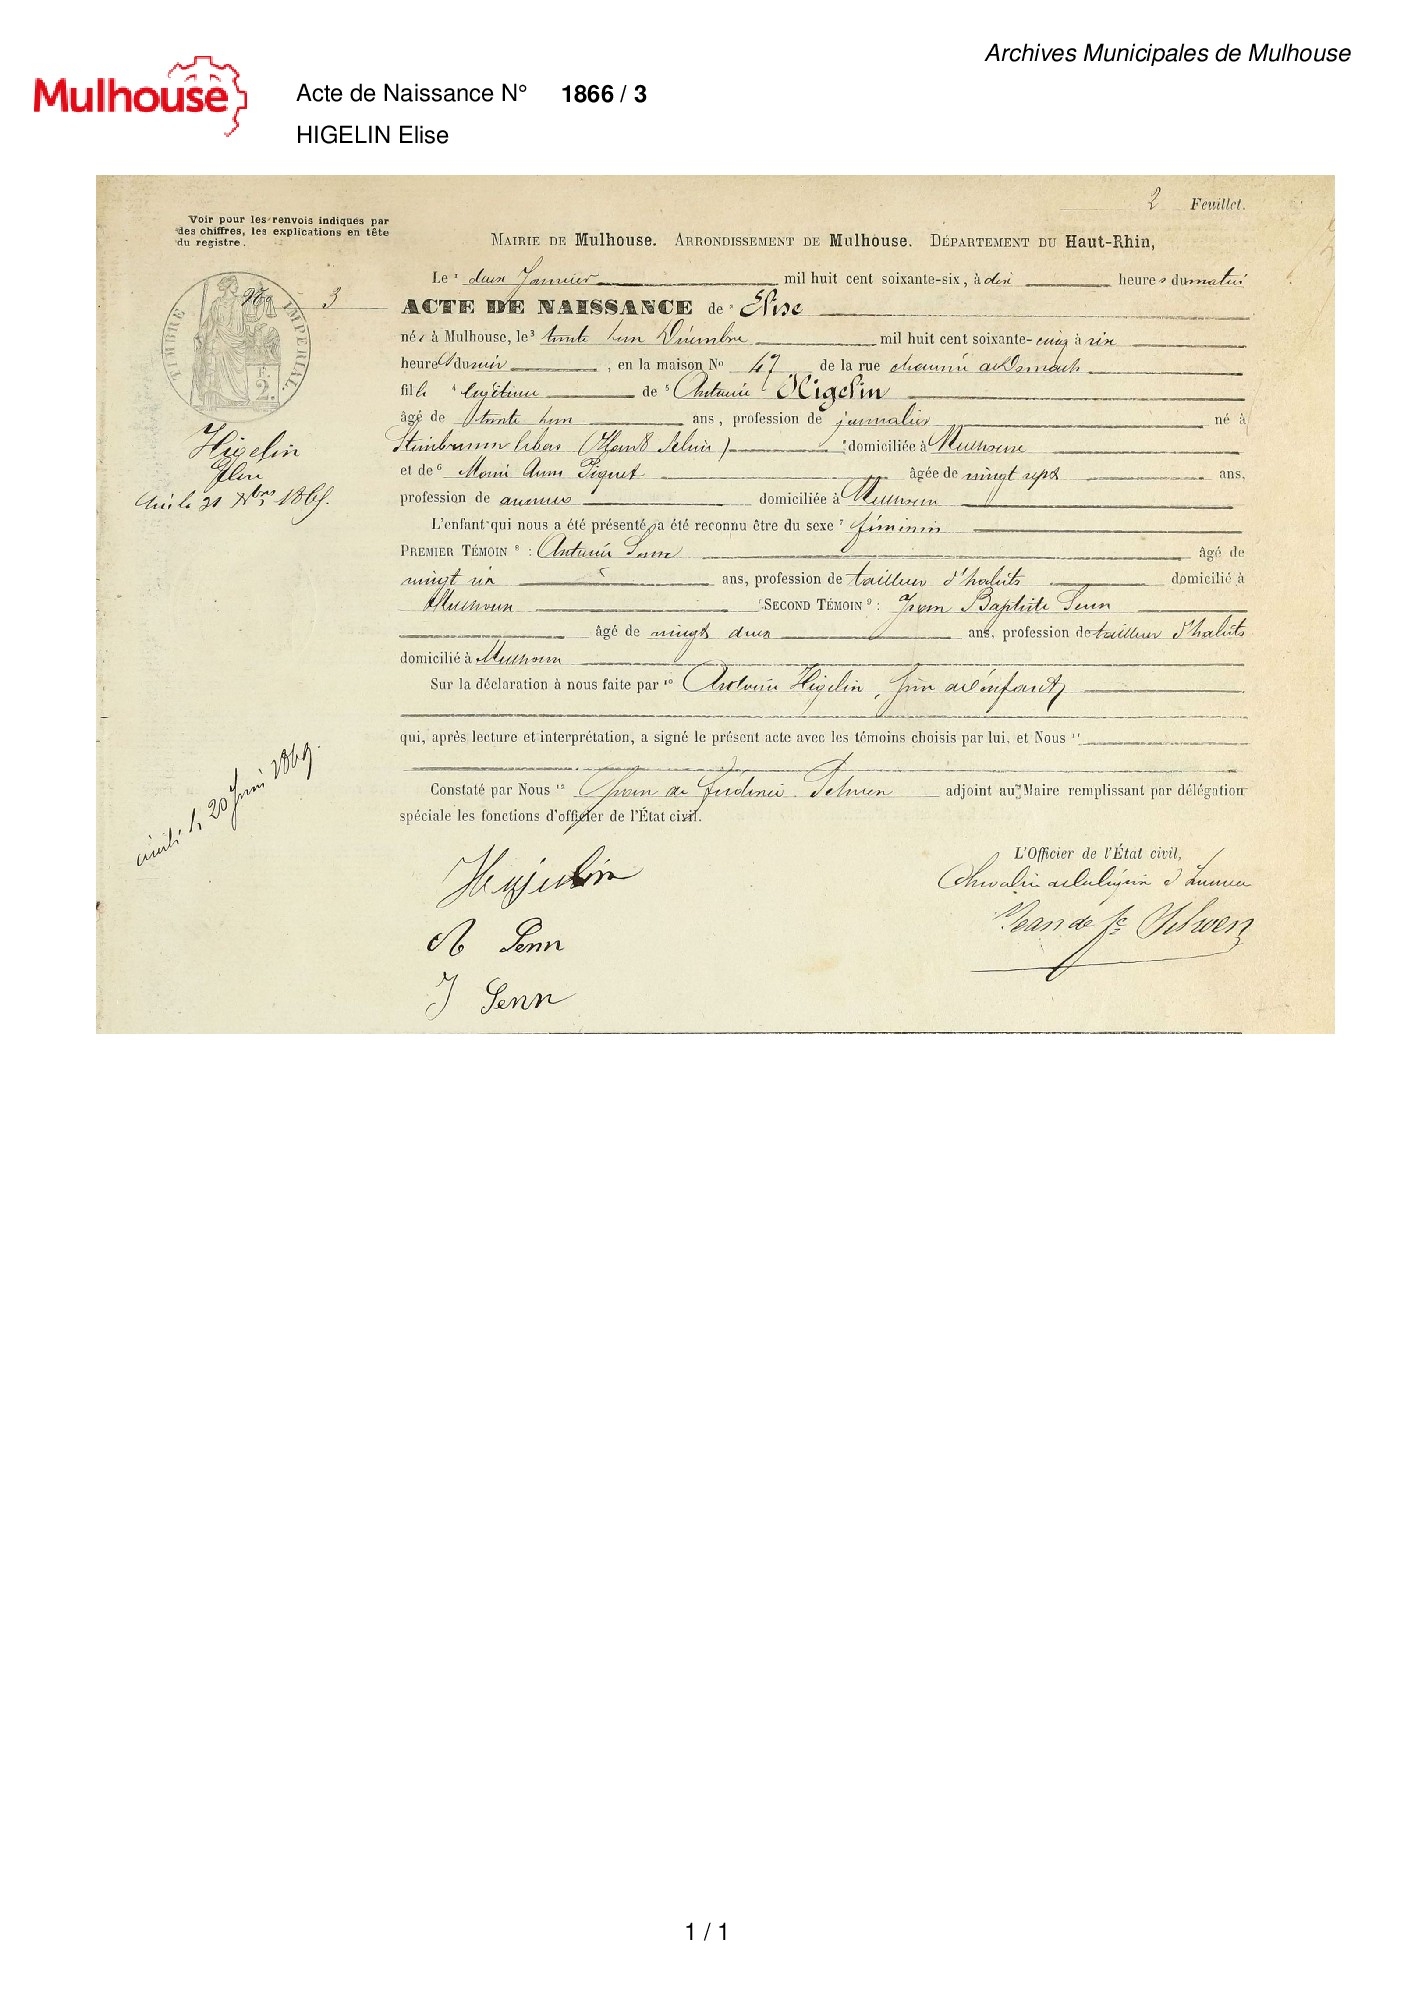 Archives Municipales de Mulhouse
Mulhouse
Acte de Naissance N° 1866 / 3
HIGELIN Elise
2 Feuillet.
Voir pour les renvois indiqués par
des chiffres, les explications en tête
du registre.
MAIRIE DE Mulhouse. ARRONDISSEMENT DE Mulhouse. DÉPARTEMENT DU Haut-Rhin,
TIMBRE IMPERIAL
2
3
Le deux Janvier mil huit cent soixante-six, à dix heures du matin
ACTE DE NAISSANCE de Elise
née à Mulhouse, le 3 trente un Décembre mil huit cent soixante-cinq à six
heures du soir, en la maison No 47 de la rue chaussée de Dornach
fille 4 légitime de 5 Antoine Higelin
âgé de trente un ans, profession de journalier né à
Steinbrunn le bas (Haut Rhin) domiciliée à Mulhouse
et de 6 Marie Anne Piquet âgée de vingt sept ans,
profession de domiciliée à Mulhouse
L'enfant qui nous a été présenté, a été reconnu être du sexe 7 féminin
PREMIER TÉMOIN 8 : Antoine Senn âgé de
vingt six ans, profession de tailleur d'habits domicilié à
Mulhouse SECOND TÉMOIN 9 : Jean Baptiste Senn
âgé de vingt deux ans, profession de tailleur d'habits
domicilié à Mulhouse
Sur la déclaration à nous faite par 10 Antoine Higelin, père de l'enfant
qui, après lecture et interprétation, a signé le présent acte avec les témoins choisis par lui, et Nous 11
Constaté par Nous 12 Jean de adjoint au Maire remplissant par délégation
spéciale les fonctions d'officier de l'État civil.
Higelin
Elise
31 Xbre 1865.
20 1869.
L'Officier de l'État civil,
Chevalier de la légion d'honneur
Jean de
Higelin
A Senn
J Senn
1 / 1